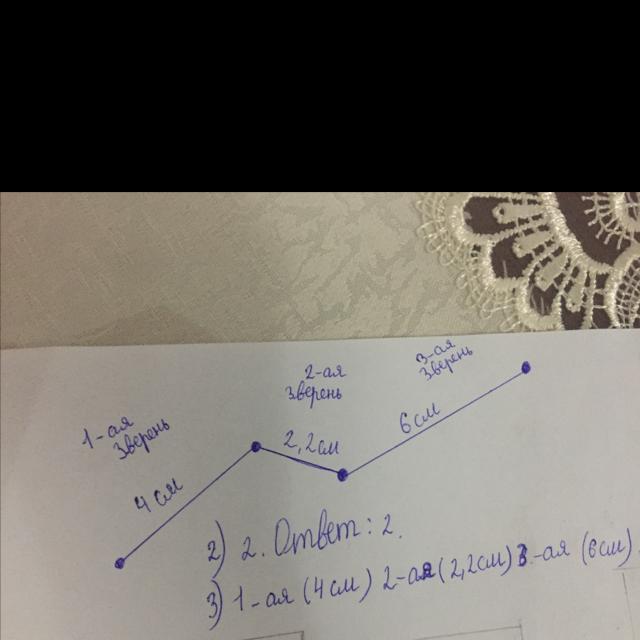 1-ая
Зверень
4 см
2-ая
Зверень
2,2см
3-ая
Зверень
6см
2) 2. Ответ: 2.
3) 1-ая (4см) 2-ая (2,2см) 3-ая (6см)